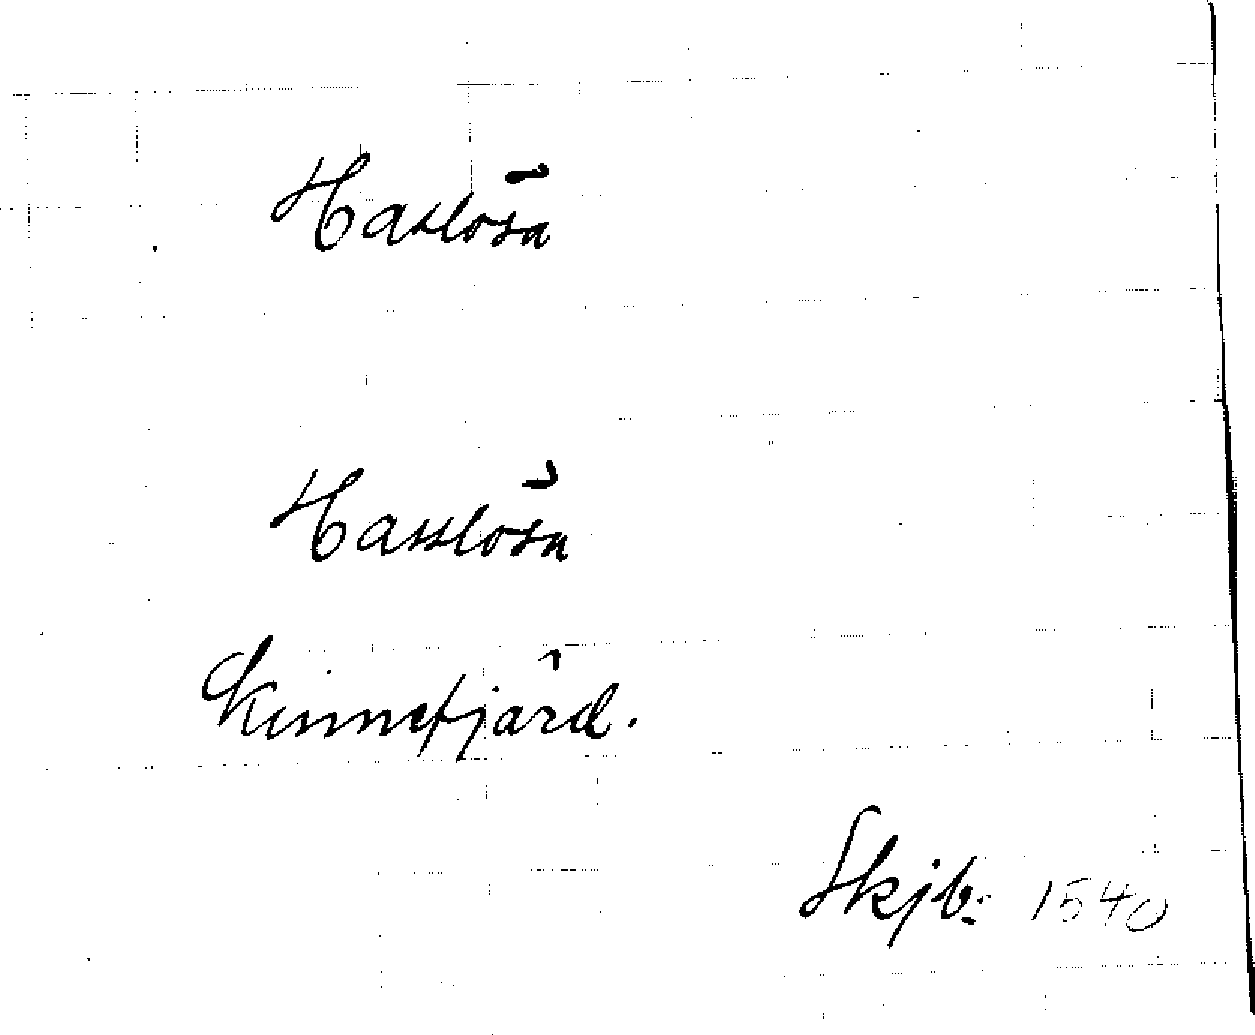 Haslösa
Hasslösa
Kinnefjärd.
Skjb: 1540